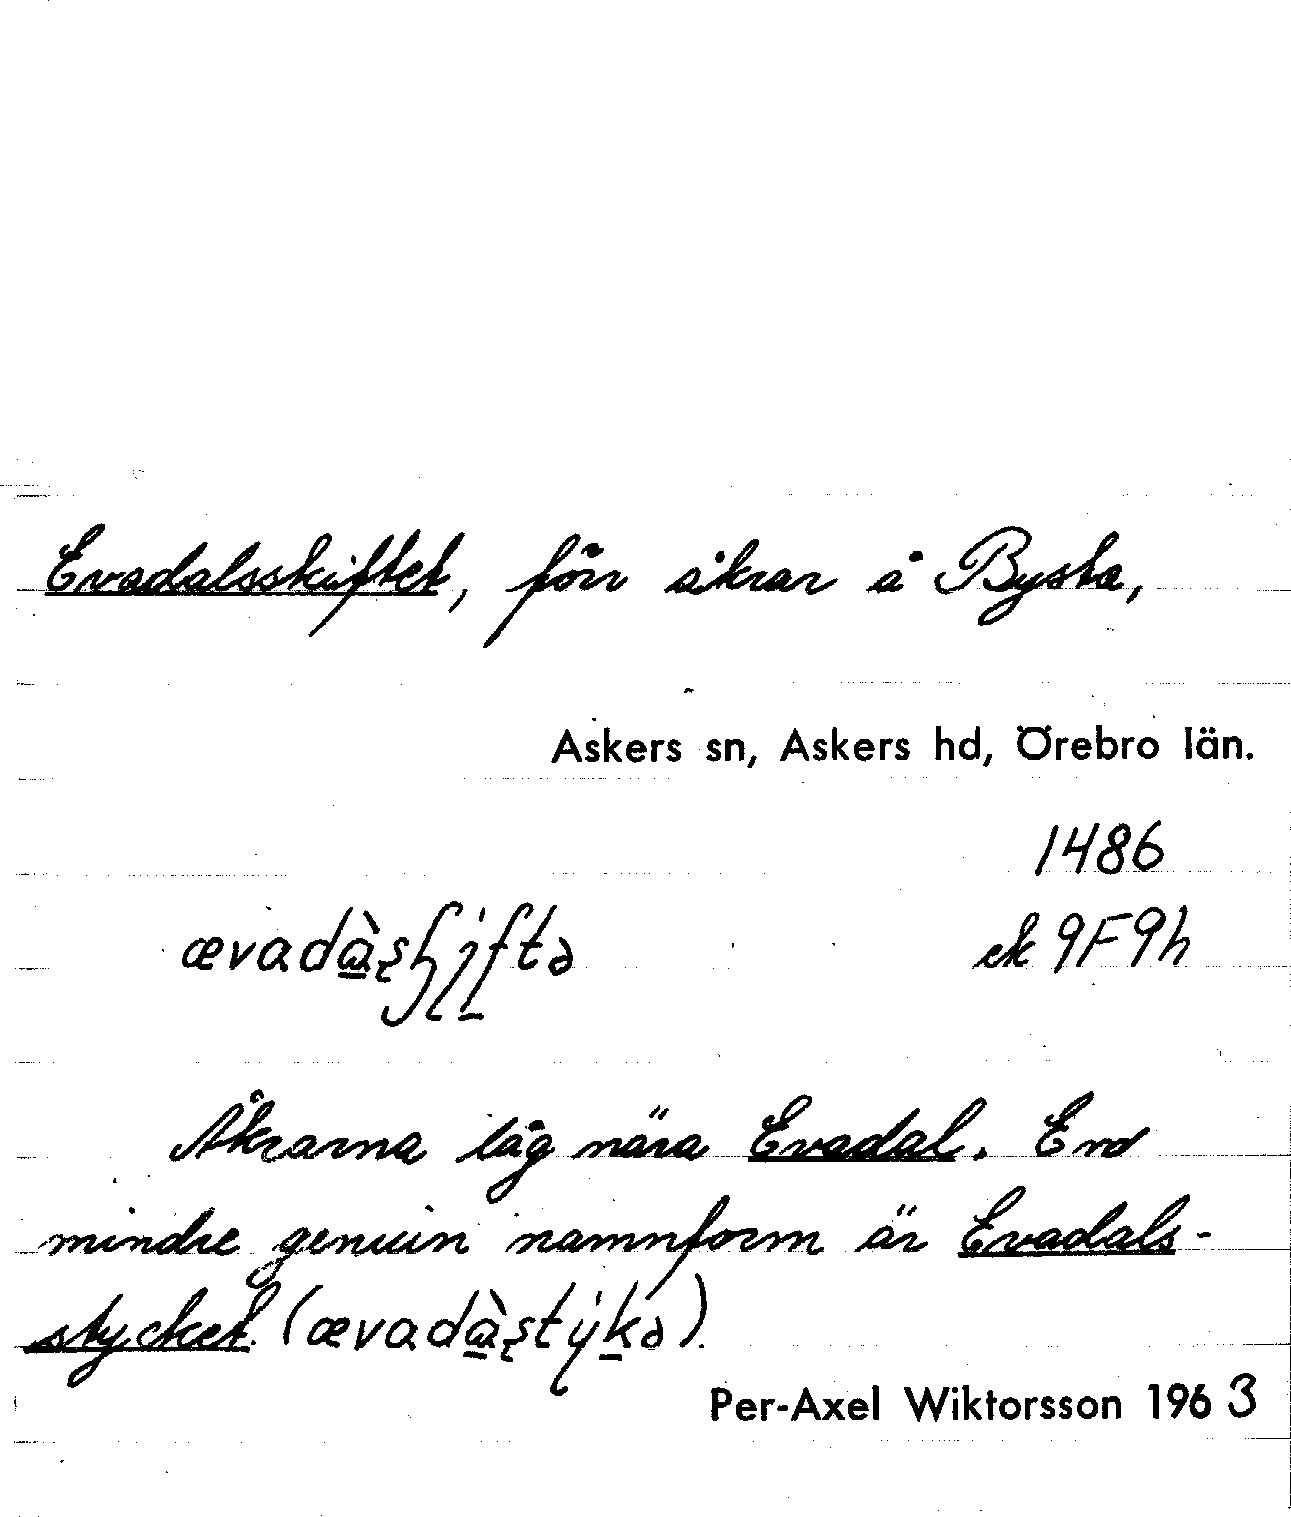 Evadalsskiftet, förr åkrar å Bysta,
Askers sn, Askers hd, Örebro län.
1486
ek 9F9h
Åkrarna låg nära Evadal. En
mindre genuin namnform är Evadals-
stycket
Per-Axel Wiktorsson 1963